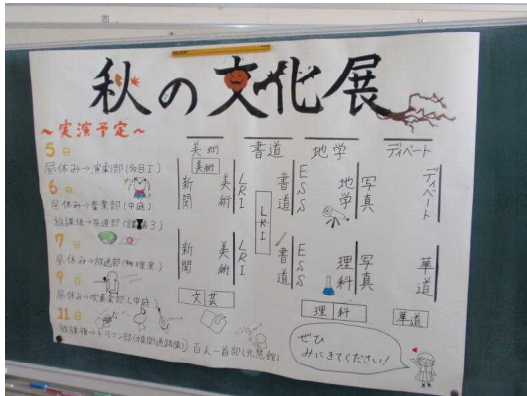 秋の文化展
～実演予定～
5日
昼休み→演劇部(多目Ⅰ)
6日
昼休み→音楽部(中庭)
放課後→茶道部
7日
昼休み→放送部(物理室)
9日
昼休み→吹奏楽部(中庭)
11日
放課後→
百人一首部
美術
書道
地学
ディベート
美術
新聞
美術
LRI
書道
ESS
地学
写真
ディベート
LRI
新聞
美術
LRI
書道
ESS
理科
写真
華道
文芸
理科
華道
ぜひ
みにきてください!